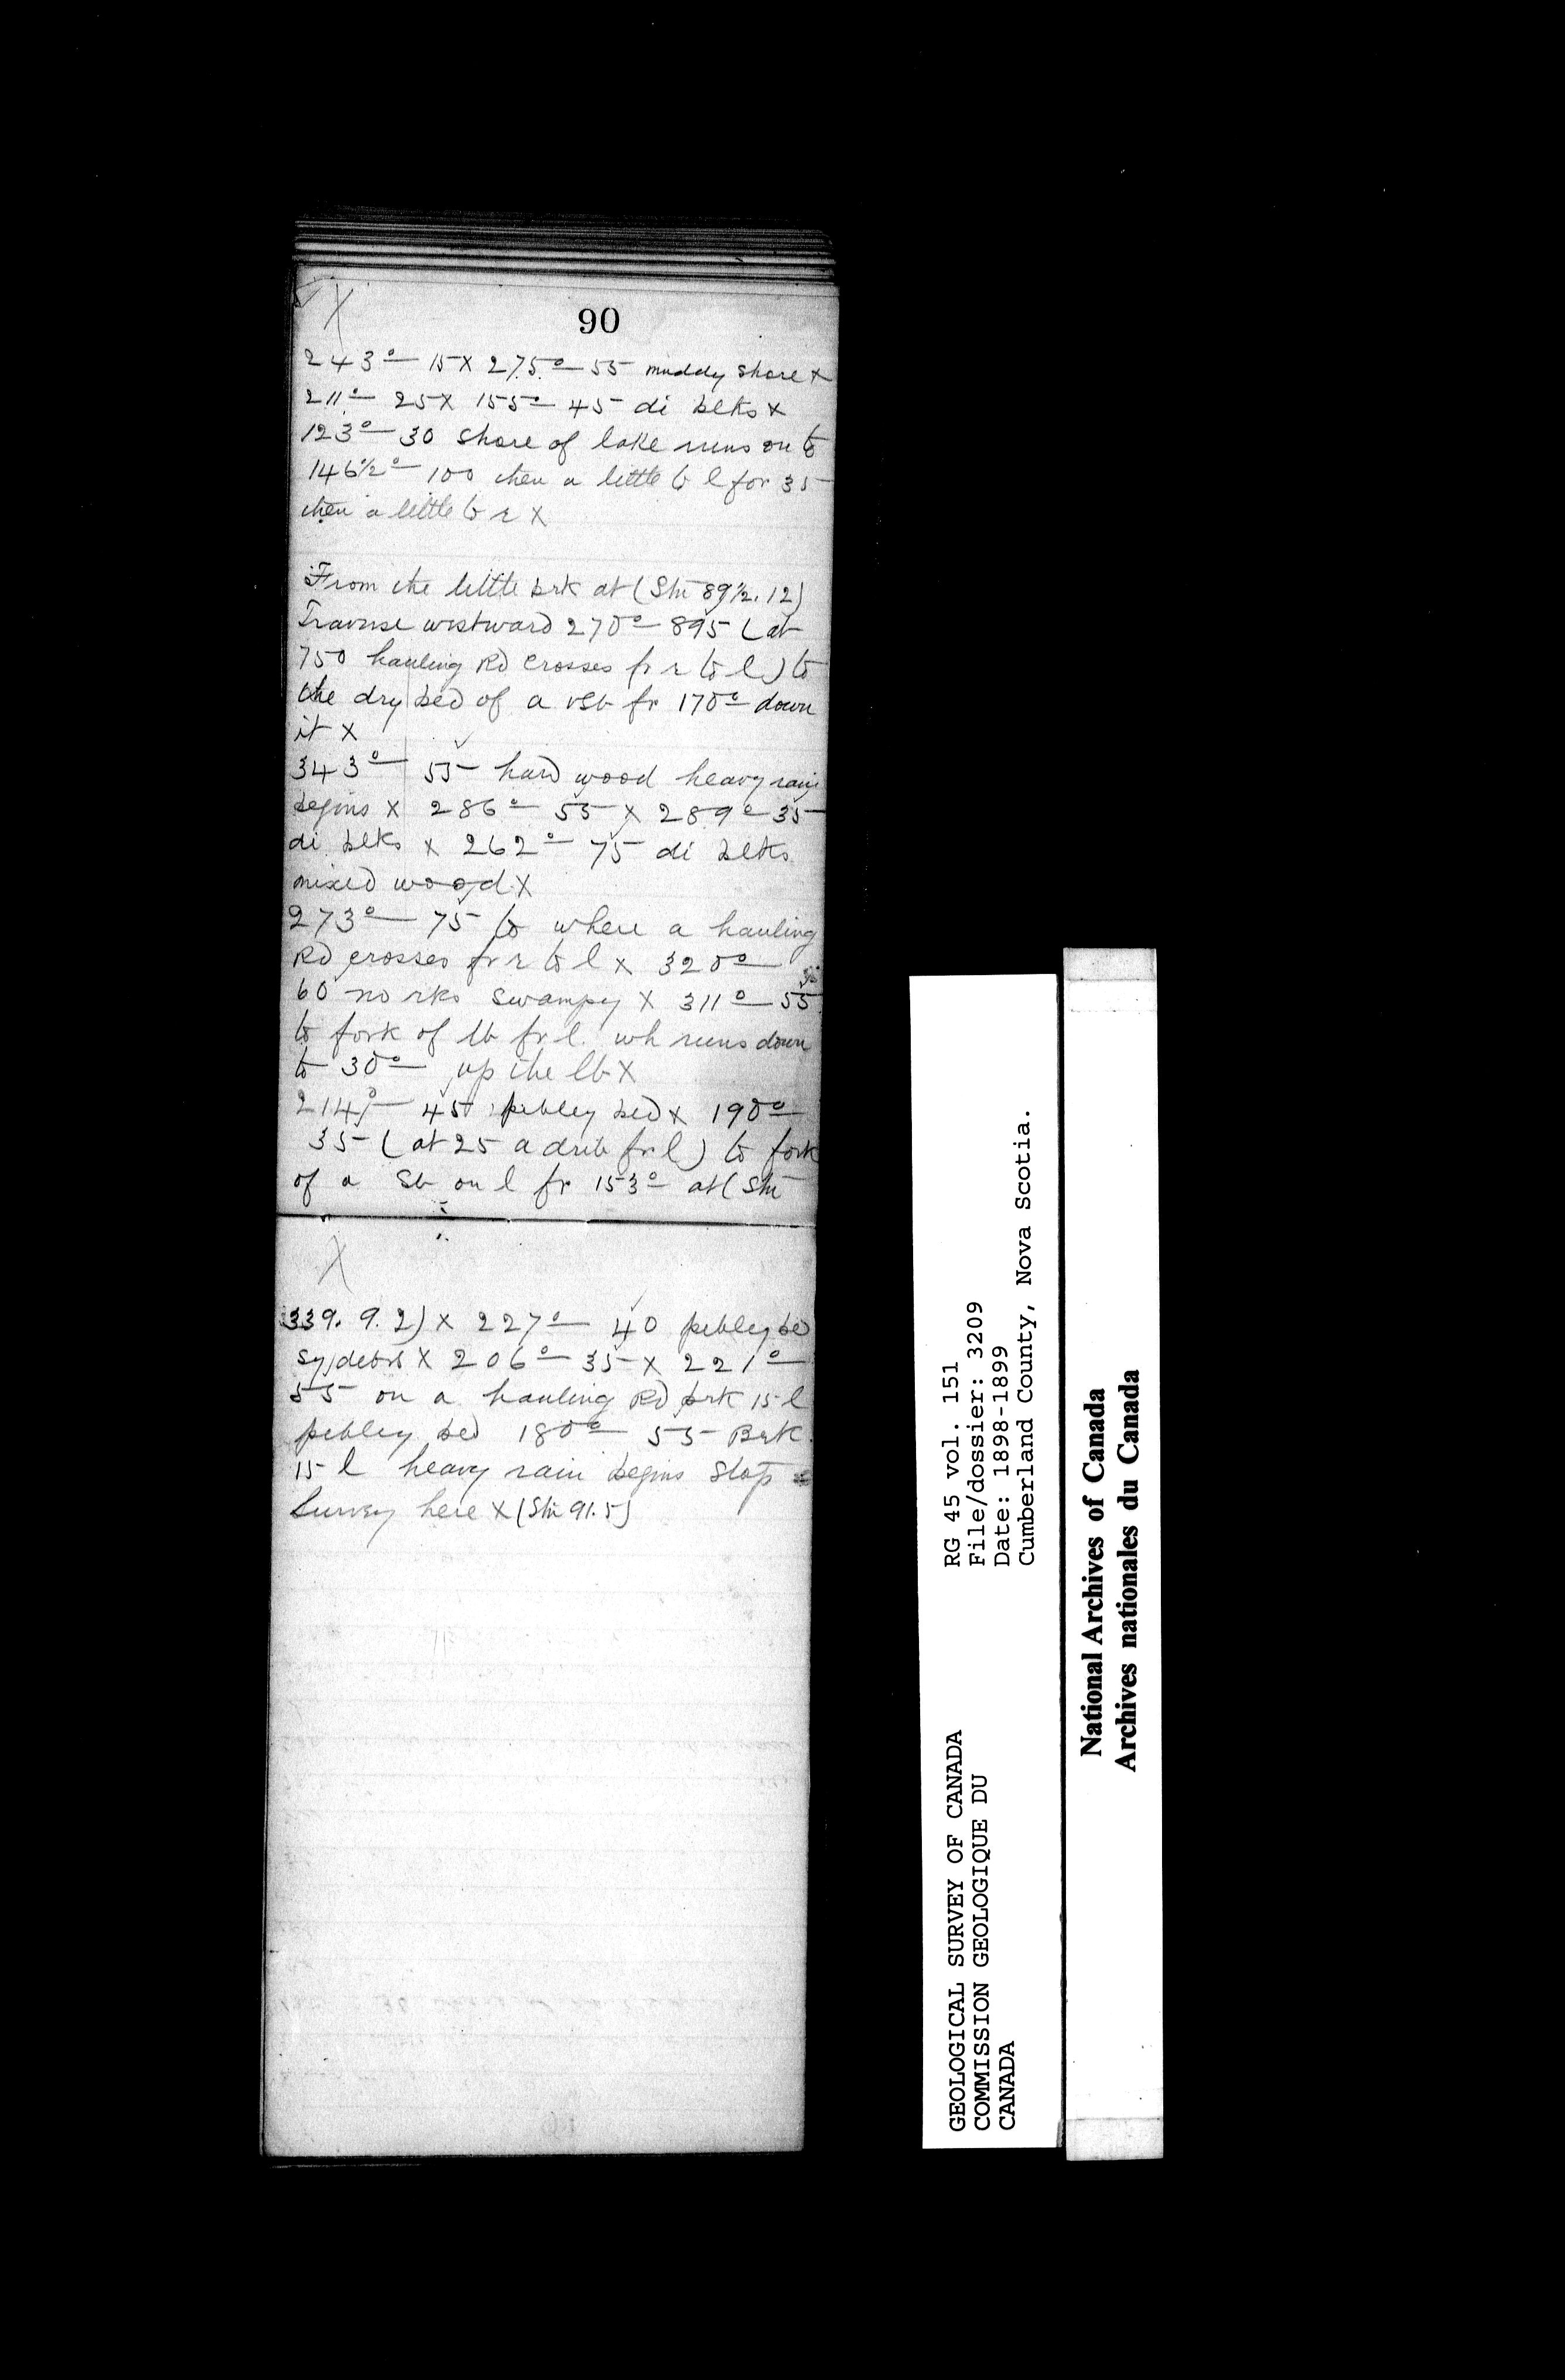 X
90
243° — 15 X 275° — 55 muddy shore X
211° — 25 X 155° — 45 di blks X
123° — 30 shore of lake runs on to
146½° — 100 then a little to l for 35
then a little to r X
From the little brk at (Stn 89½.12)
Traverse westward 270° — 895 (at
750 hauling Rd crosses fr r to l) to
the dry bed of a vsb fr 170° — down
it X
343° — 55 hard wood heavy rain
begins X 286° — 55 X 289° — 35
di blks X 262° — 75 di blks
mixed wood X
273° — 75 to where a hauling
Rd crosses fr r to l X 320° —
60 no rks swampy X 311° — 55
to fork of lb fr l. wh runs down
to 30° — up the lb X
214° — 45 pebbley bed X 190° —
35 (at 25 a drib fr l) to fork
of a Sb on l fr 153° — at (Stn
X
339. 9. 2) X 227° — 40 pebley bed
Sy debris X 206° — 35 X 221° —
55 on a hauling Rd brk 15 l
pebley bed 180° — 55 Brk
15 l heavy rain begins stop
Survey here X (Stn 91.5)
RG 45 vol. 151
File/dossier: 3209
Date: 1898-1899
Cumberland County, Nova Scotia.
GEOLOGICAL SURVEY OF CANADA
COMMISSION GEOLOGIQUE DU
CANADA
National Archives of Canada
Archives nationales du Canada